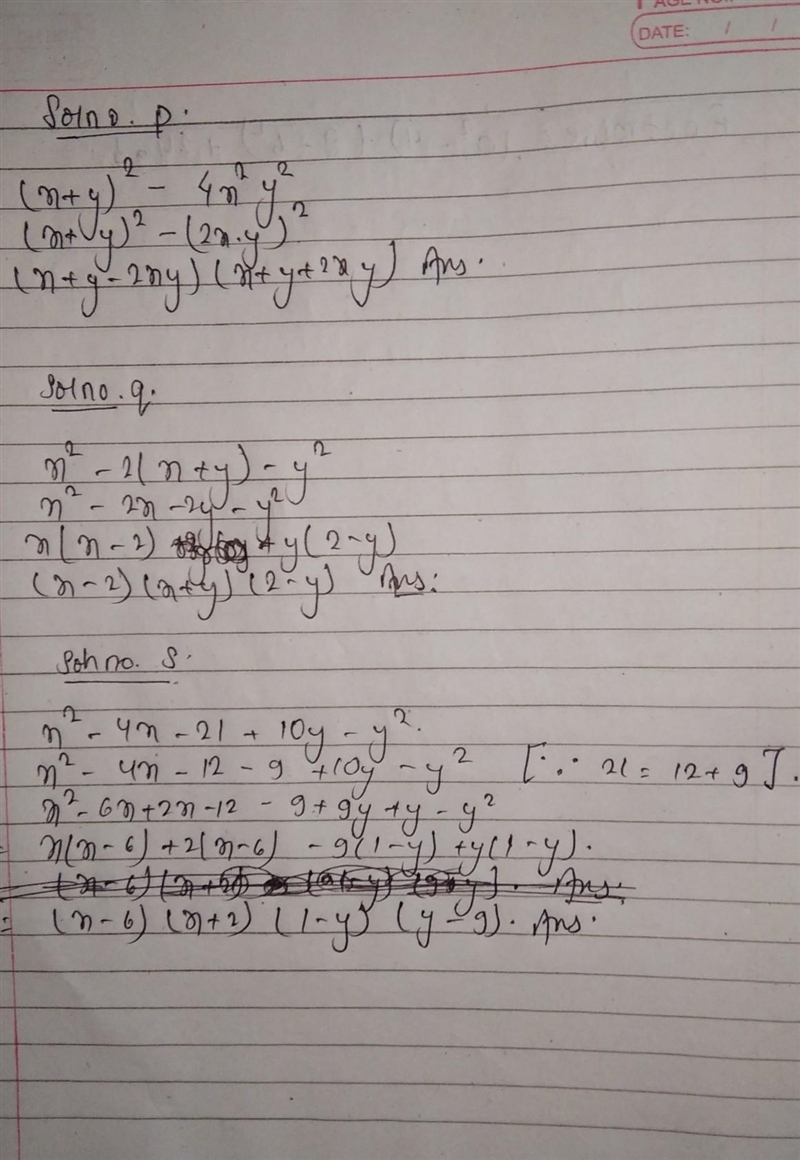 PAGE NO.
DATE: / /
Soln no. p.
(x+y)² - 4x²y²
(x+y)² - (2x.y)²
(x+y-2xy) (x+y+2xy) Ans.
Soln no. q.
x² - 2(x+y) - y²
x² - 2x - 2y - y²
x(x-2) + y(2-y)
(x-2) (x+y) (2-y) Ans:
Soln no. S.
x² - 4x - 21 + 10y - y².
x² - 4x - 12 - 9 + 10y - y² [∵ 21 = 12 + 9].
x² - 6x + 2x - 12 - 9 + 9y + y - y²
= x(x-6) + 2(x-6) - 9(1-y) + y(1-y).
= (x-6) (x+2) (1-y) (y-9). Ans.